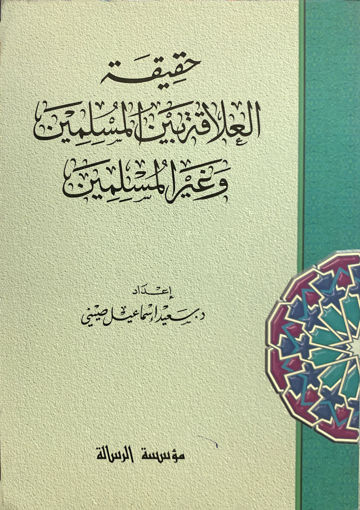 حقيقة
العلاقة بين المسلمين
وغير المسلمين
إعداد
د. سعيد إسماعيل صيني
مؤسسة الرسالة